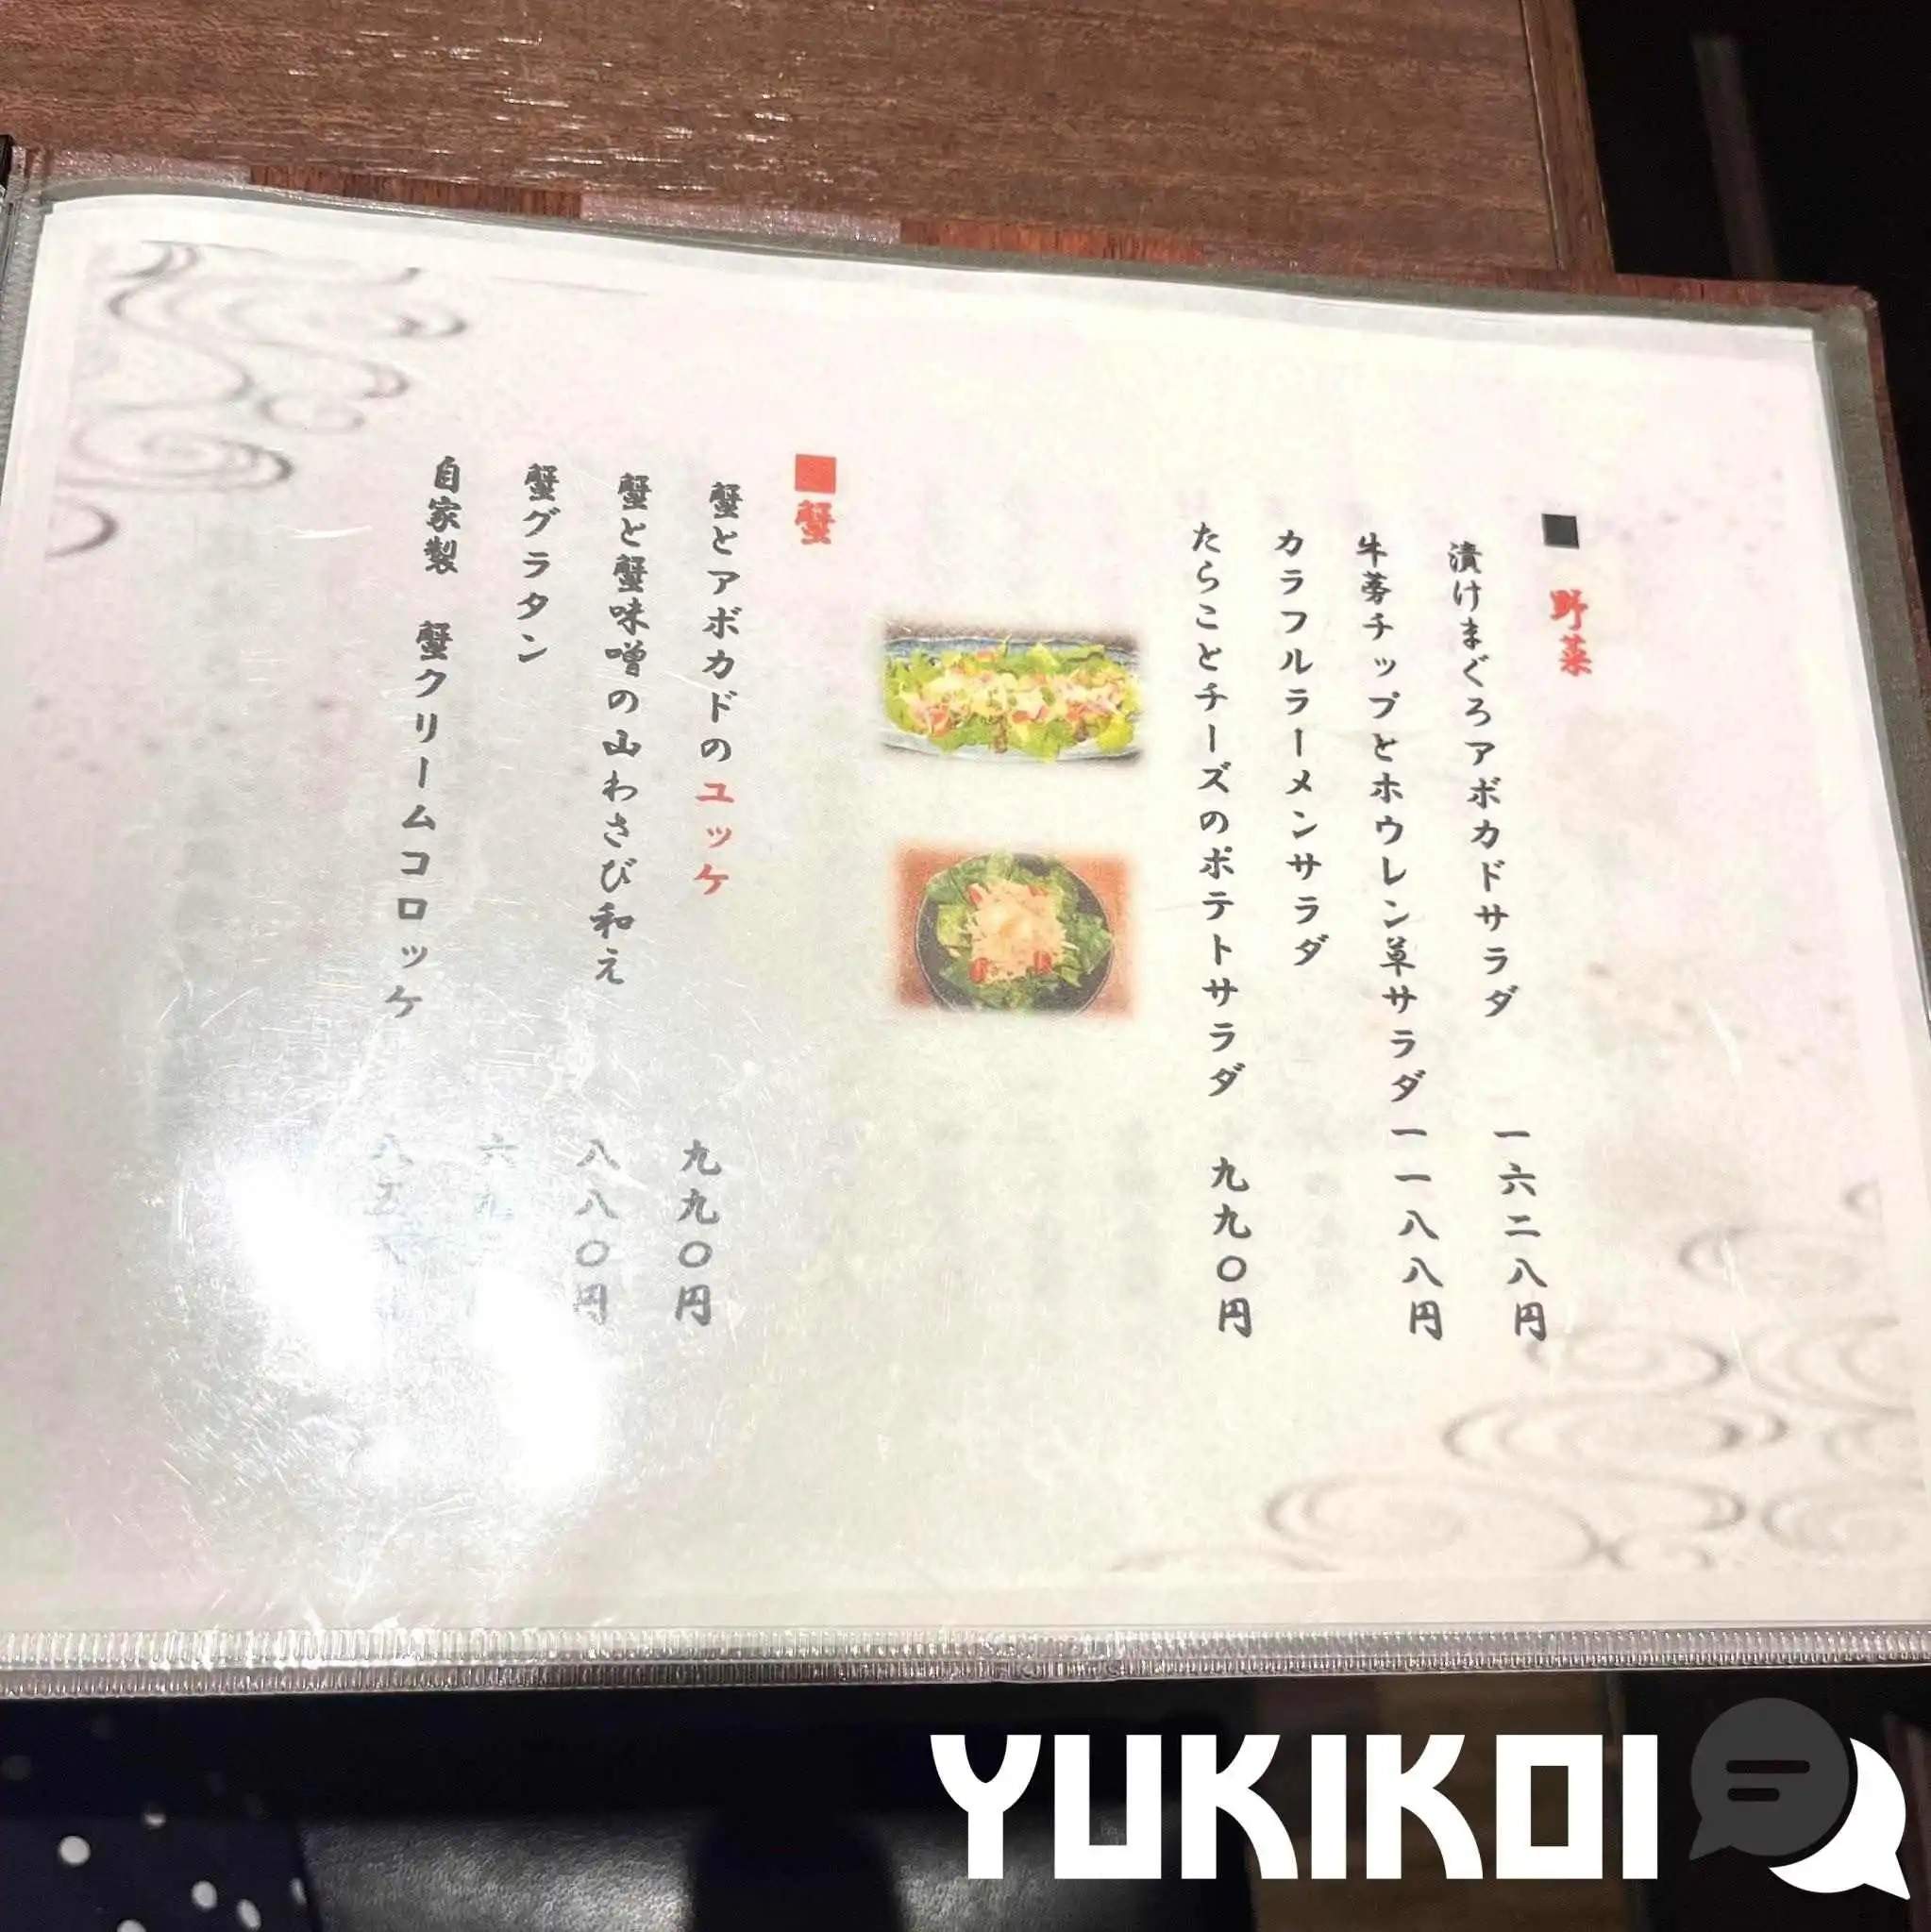 ■ 野菜
漬けまぐろアボカドサラダ 一六二八円
牛蒡チップとホウレン草サラダ 一一八八円
カラフルラーメンサラダ
たらことチーズのポテトサラダ 九九〇円
■ 蟹
蟹とアボカドのユッケ 九九〇円
蟹と蟹味噌の山わさび和え 八八〇円
蟹グラタン
自家製 蟹クリームコロッケ
YUKIKOI